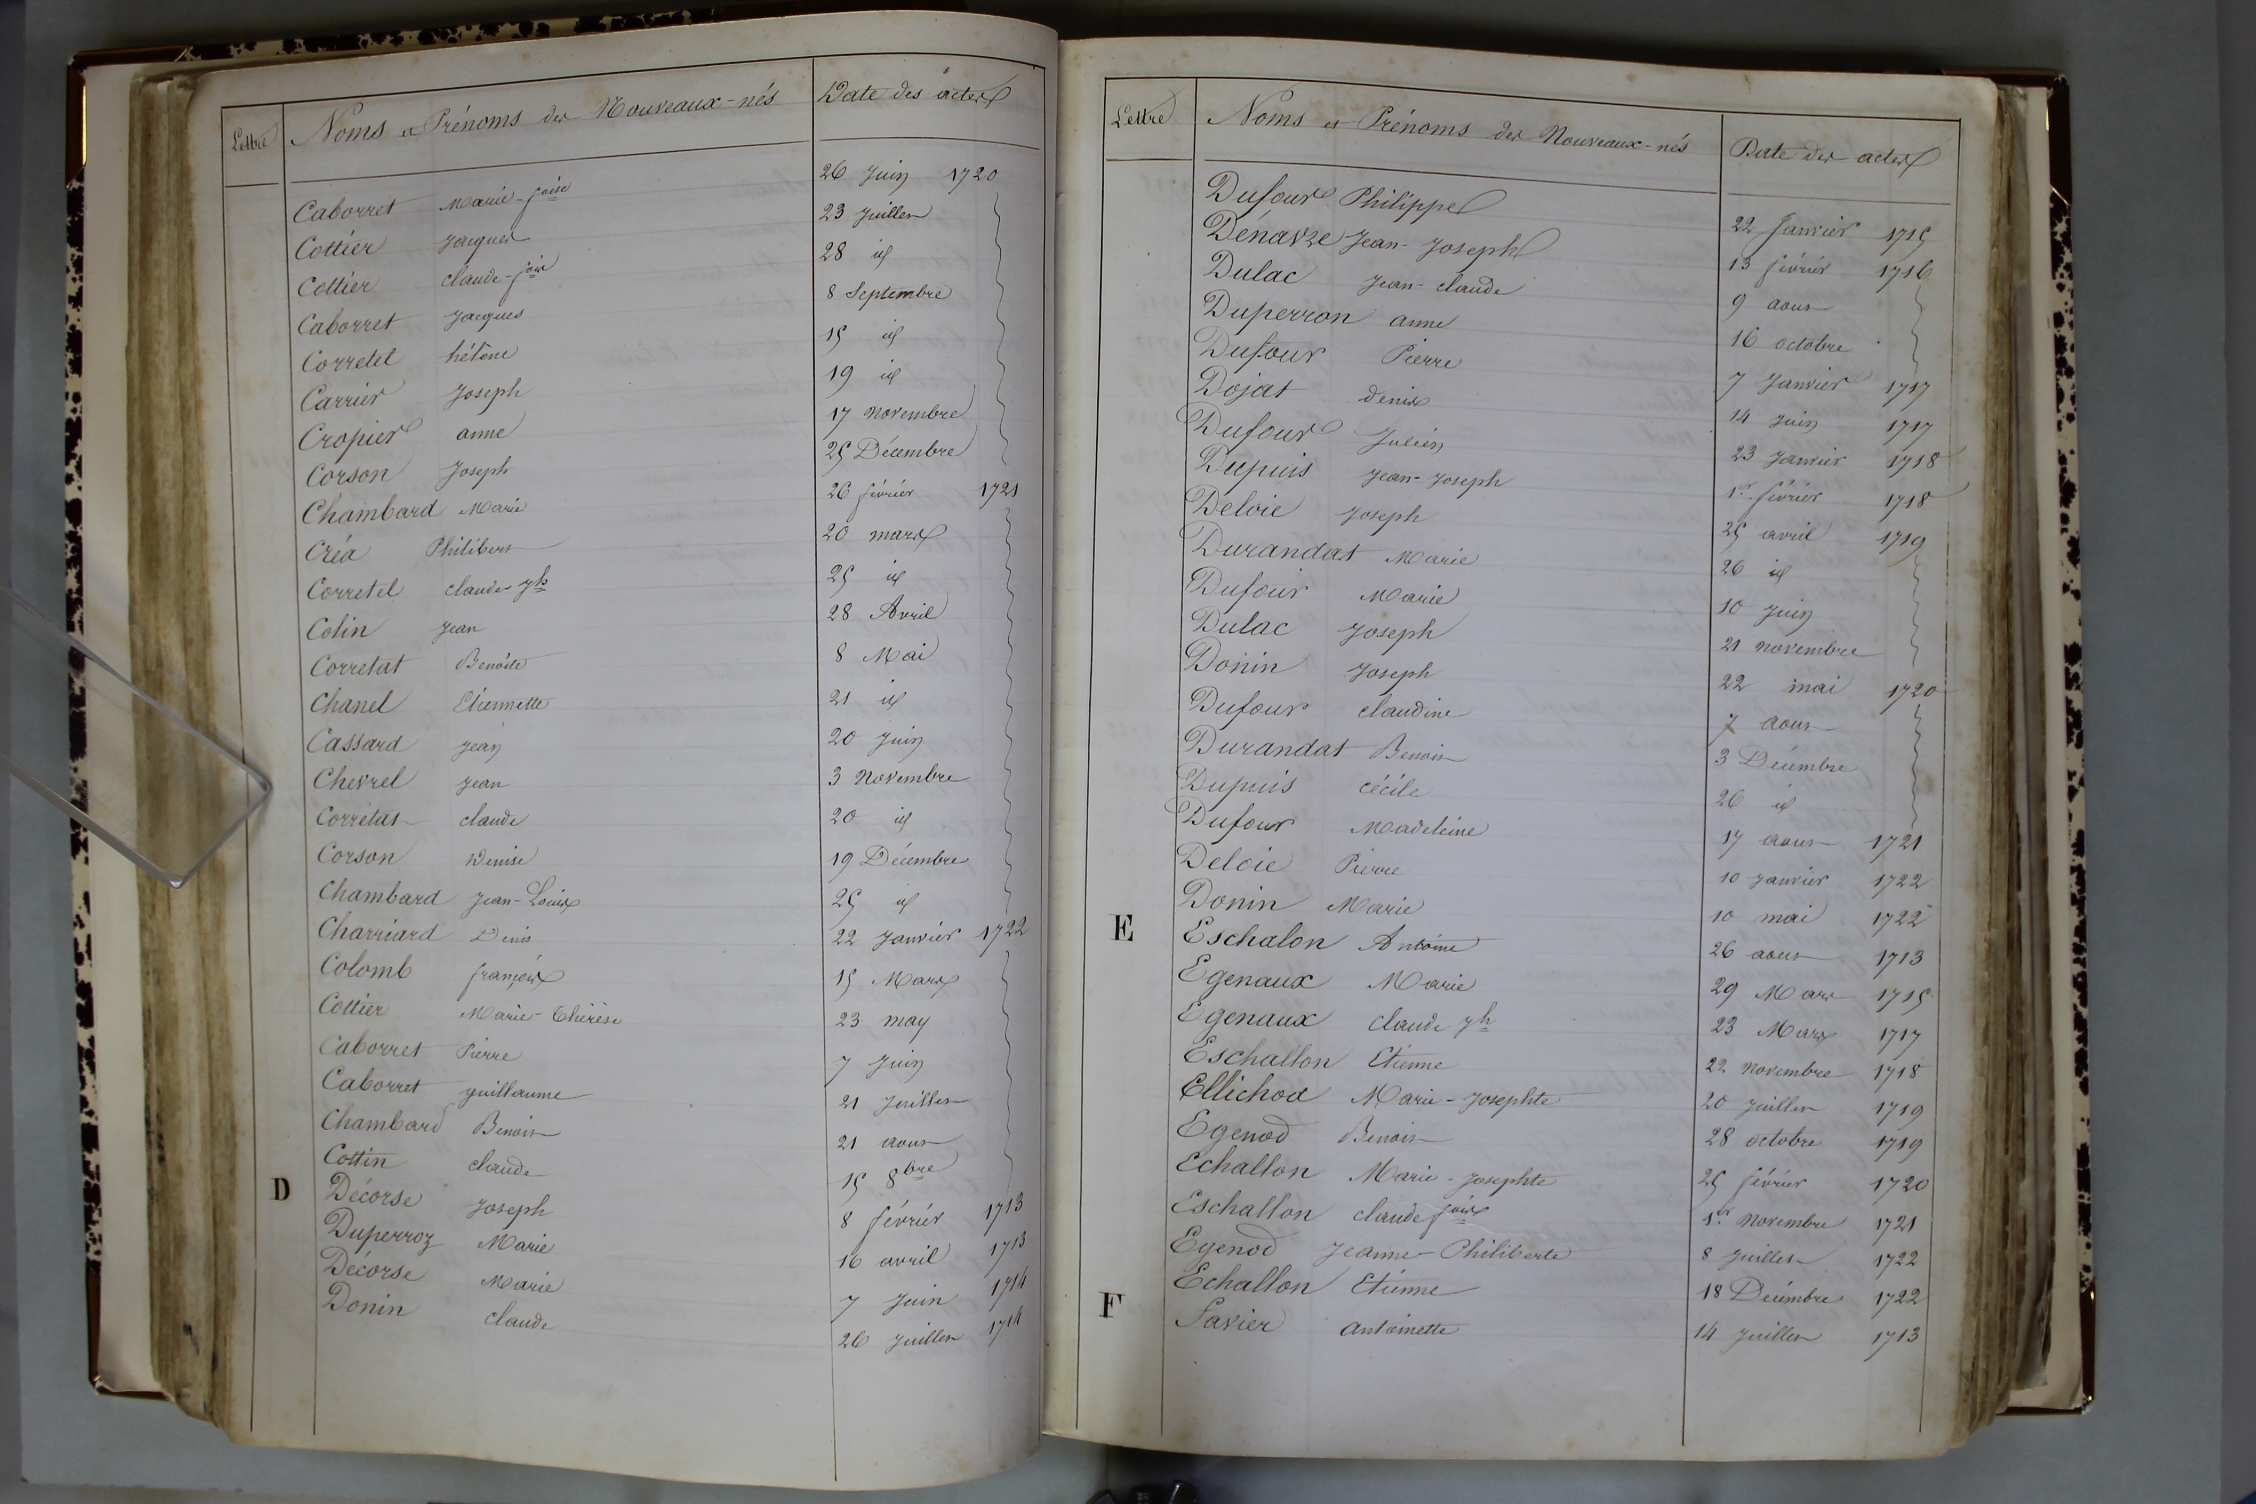 Lettre Noms et Prénoms des Nouveaux-nés Date des actes
Caborret Marie-fçoise 26 Juin 1720
Cottier Jacques 23 Juillet
Cottier claude-fçois 28 id
Caborret Jacques 8 Septembre
Corretel hélène 15 id
Carrier Joseph 19 id
Cropier anne 17 Novembre
Corson Joseph 25 Décembre
Chambard Marie 26 février 1721
Créa Philibert 20 mars
Corretel claude-Jh 25 id
Colin Jean 28 Avril
Corretat Benoite 8 Mai
Chanel Etiennette 21 id
Cassard Jean 20 Juin
Chevrel Jean 3 Novembre
Corretat claude 20 id
Corson Denise 19 Décembre
Chambard Jean-Louis 25 id
Charriard Denis 22 Janvier 1722
Colomb françois 15 Mars
Cottier Marie-Thérèse 23 may
Caborret Pierre 7 Juin
Caborret guillaume 21 Juillet
Chambard Benoit 21 aout
Cottin claude 15 8bre
D Décorse Joseph 8 février 1713
Duperroz Marie 16 avril 1713
Décorse Marie 7 Juin 1714
Donin claude 26 Juillet 1714
Lettre Noms et Prénoms des Nouveaux-nés Date des actes
Dufour Philippe 22 Janvier 1715
Dénavze Jean-Joseph 13 février 1716
Dulac Jean-claude 9 aout
Duperron anne 16 octobre
Dufour Pierre 7 Janvier 1717
Dojat denis 14 Juin 1717
Dufour Julien 23 Janvier 1718
Dupuis Jean-Joseph 1er février 1718
Deloie Joseph 25 avril 1719
Durandat Marie 26 id
Dufour Marie 10 Juin
Dulac Joseph 21 Novembre
Donin Joseph 22 mai 1720
Dufour claudine 7 aout
Durandat Benoit 3 Décembre
Dupuis cécile 26 id
Dufour Madeleine 17 aout 1721
Deloie Pierre 10 Janvier 1722
Donin Marie 10 mai 1722
E Eschalon Antoine 26 aout 1713
Egenaux Marie 29 Mars 1715
Egenaux claude Jh 23 Mars 1717
Eschallon Etienne 22 Novembre 1718
Ellichod Marie-Josephte 20 Juillet 1719
Egenod Benoit 28 octobre 1719
Echallon Marie-Josephte 25 février 1720
Eschallon claude fçois 1er Novembre 1721
Egenod Jeanne-Philiberte 8 Juillet 1722
Echallon Etienne 18 Décembre 1722
F Favier antoinette 14 Juillet 1713